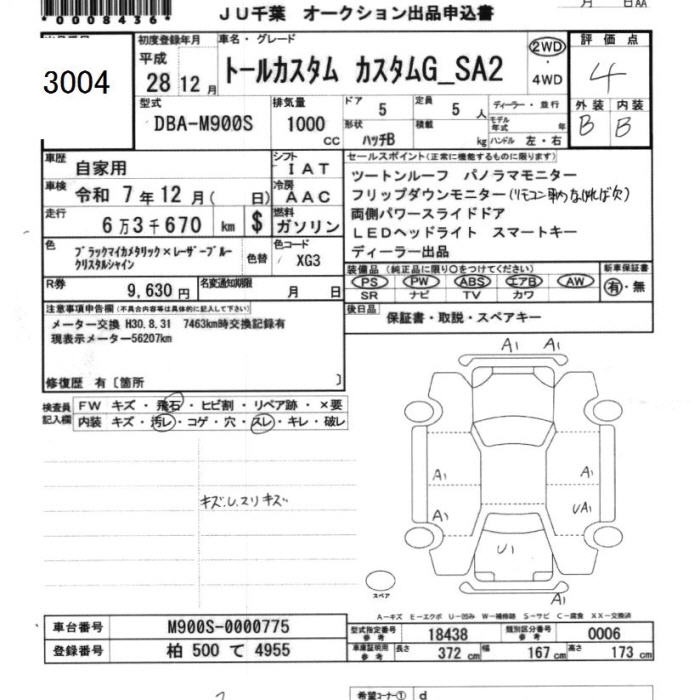 *00008436*
JU千葉 オークション出品申込書
月 日AA
3004
初度登録年月
平成
28 12 月
車名・グレード
トールカスタム カスタムG_SA2
2WD
・
4WD
評価点
4
外装 内装
B B
型式
DBA-M900S
排気量
1000 cc
ドア 5
定員 5 人
形状 ハッチB
積載 kg
ディーラー・並行
モデル年式 年
ハンドル 左・右
車歴
自家用
シフト
I AT
車検
令和 7 年 12 月( 日)
冷房
AAC
走行
6万3千670 km $
燃料
ガソリン
色
ブラックマイカメタリック×レーザーブルー
クリスタルシャイン
色替
色コード
XG3
R券
9,630 円
名変通知期限
月 日
セールスポイント(正常に機能するものに限ります)
ツートンルーフ パノラマモニター
フリップダウンモニター(リモコン車内なければ欠)
両側パワースライドドア
LEDヘッドライト スマートキー
ディーラー出品
装備品(純正品に限り○をつけてください)
PS PW ABS エアB AW
SR ナビ TV カワ
新車保証書
有・無
後日品
保証書・取説・スペアキー
注意事項申告欄(不具合内容等は具体的に記入して下さい)
メーター交換 H30.8.31 7463km時交換記録有
現表示メーター56207km
修復歴 有〔箇所 〕
検査員
記入欄
FW キズ・飛石・ヒビ割・リペア跡・×要
内装 キズ・汚レ・コゲ・穴・スレ・キレ・破レ
キズ.U.スリキズ
A1 A1
A1 A1
A1 UA1
U1
A1
スペア
A-キズ E-エクボ U-凹み W-補修跡 S-サビ C-腐食 XX-交換済
車台番号
M900S-0000775
登録番号
柏 500 て 4955
型式指定番号
参考
18438
類別区分番号
参考
0006
車庫証明用
参考
長さ 372 cm 幅 167 cm 高さ 173 cm
希望コーナー① d